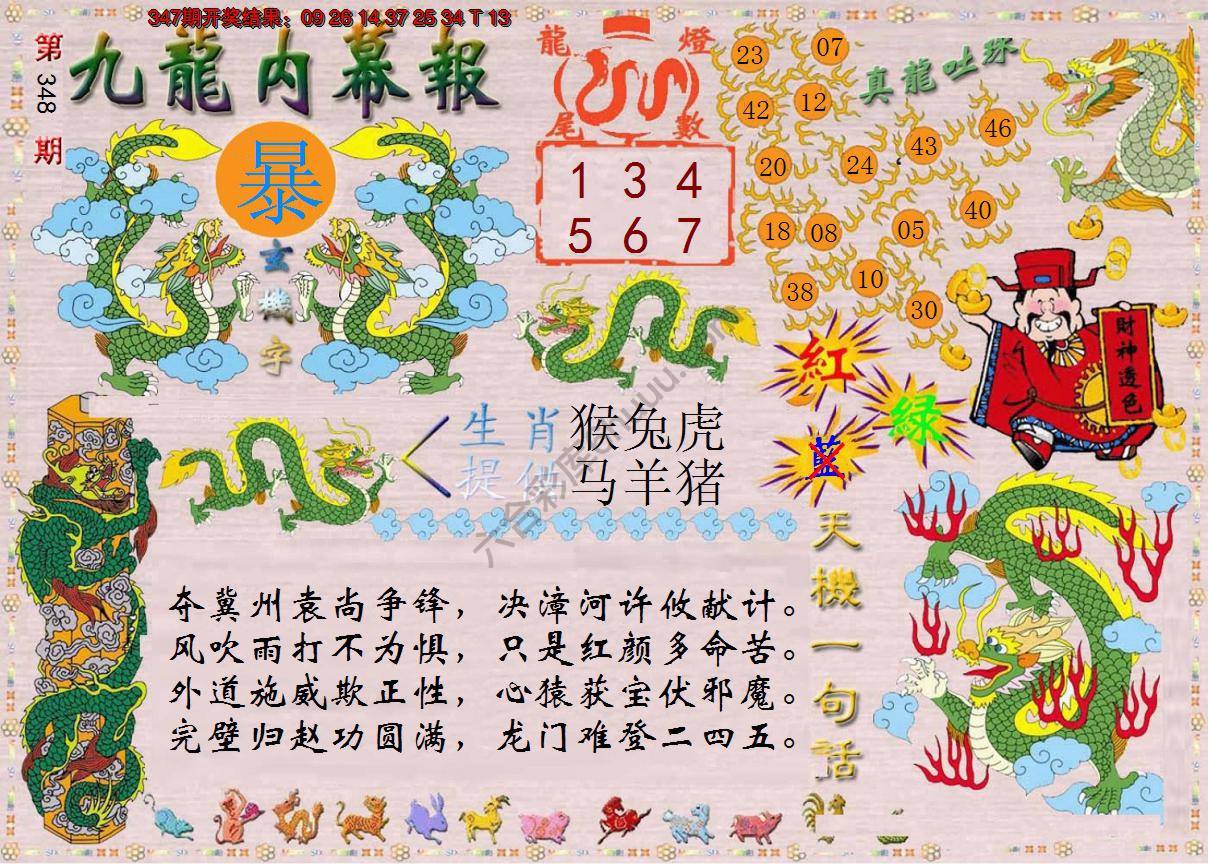 347期开奖结果：09 26 14 37 25 34 T 13
第348期
九龍内幕報
暴
玄機字
龍燈
尾數
1 3 4
5 6 7
真龍吐珠
23 07
42 12
20 24 43 46
18 08 05 40
38 10 30
財神透色
紅
綠
藍
生肖
提供
猴兔虎
马羊猪
天機一句話
夺冀州袁尚争锋，决漳河许攸献计。
风吹雨打不为惧，只是红颜多命苦。
外道施威欺正性，心猿获宝伏邪魔。
完壁归赵功圆满，龙门难登二四五。